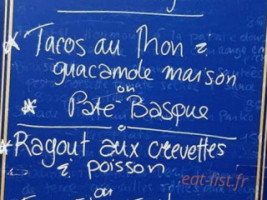 * Tacos au Thon &
guacamole maison
ou
* Paté Basque
o
* Ragout aux crevettes
& poisson
ou
eat-list.fr